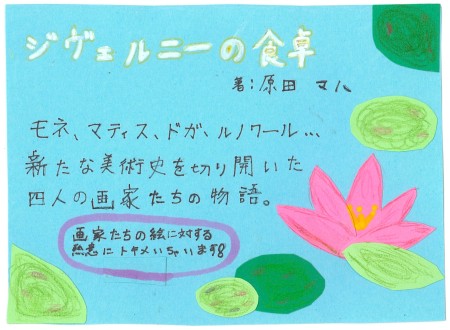 ジヴェルニーの食卓
著:原田 マハ
モネ、マティス、ドガ、ルノワール…
新たな美術史を切り開いた
四人の画家たちの物語。
画家たちの絵に対する
熱意にトキメいちゃいます!